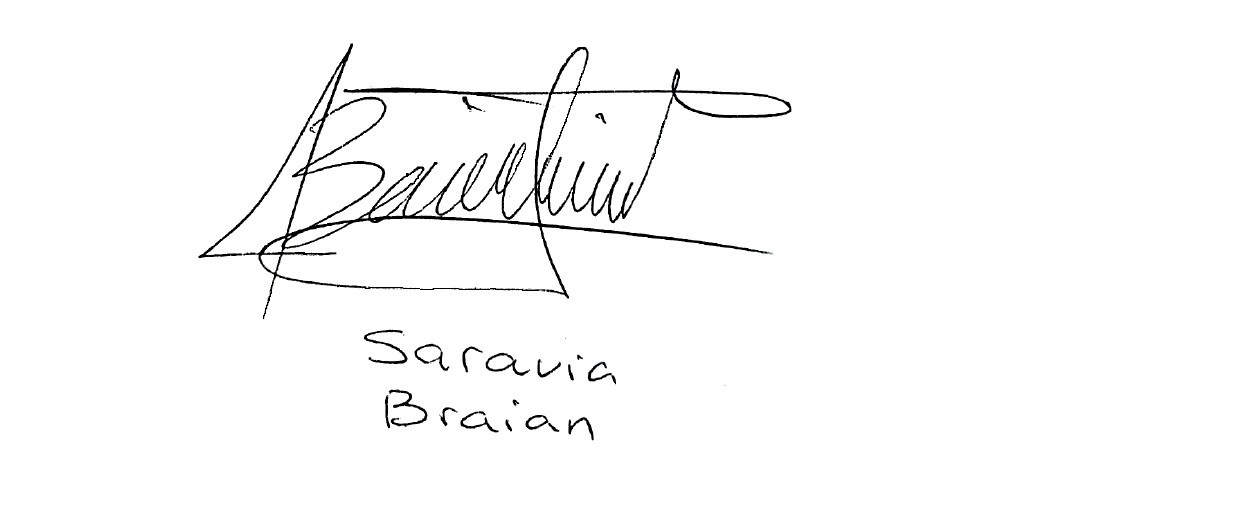 Saravia
Braian